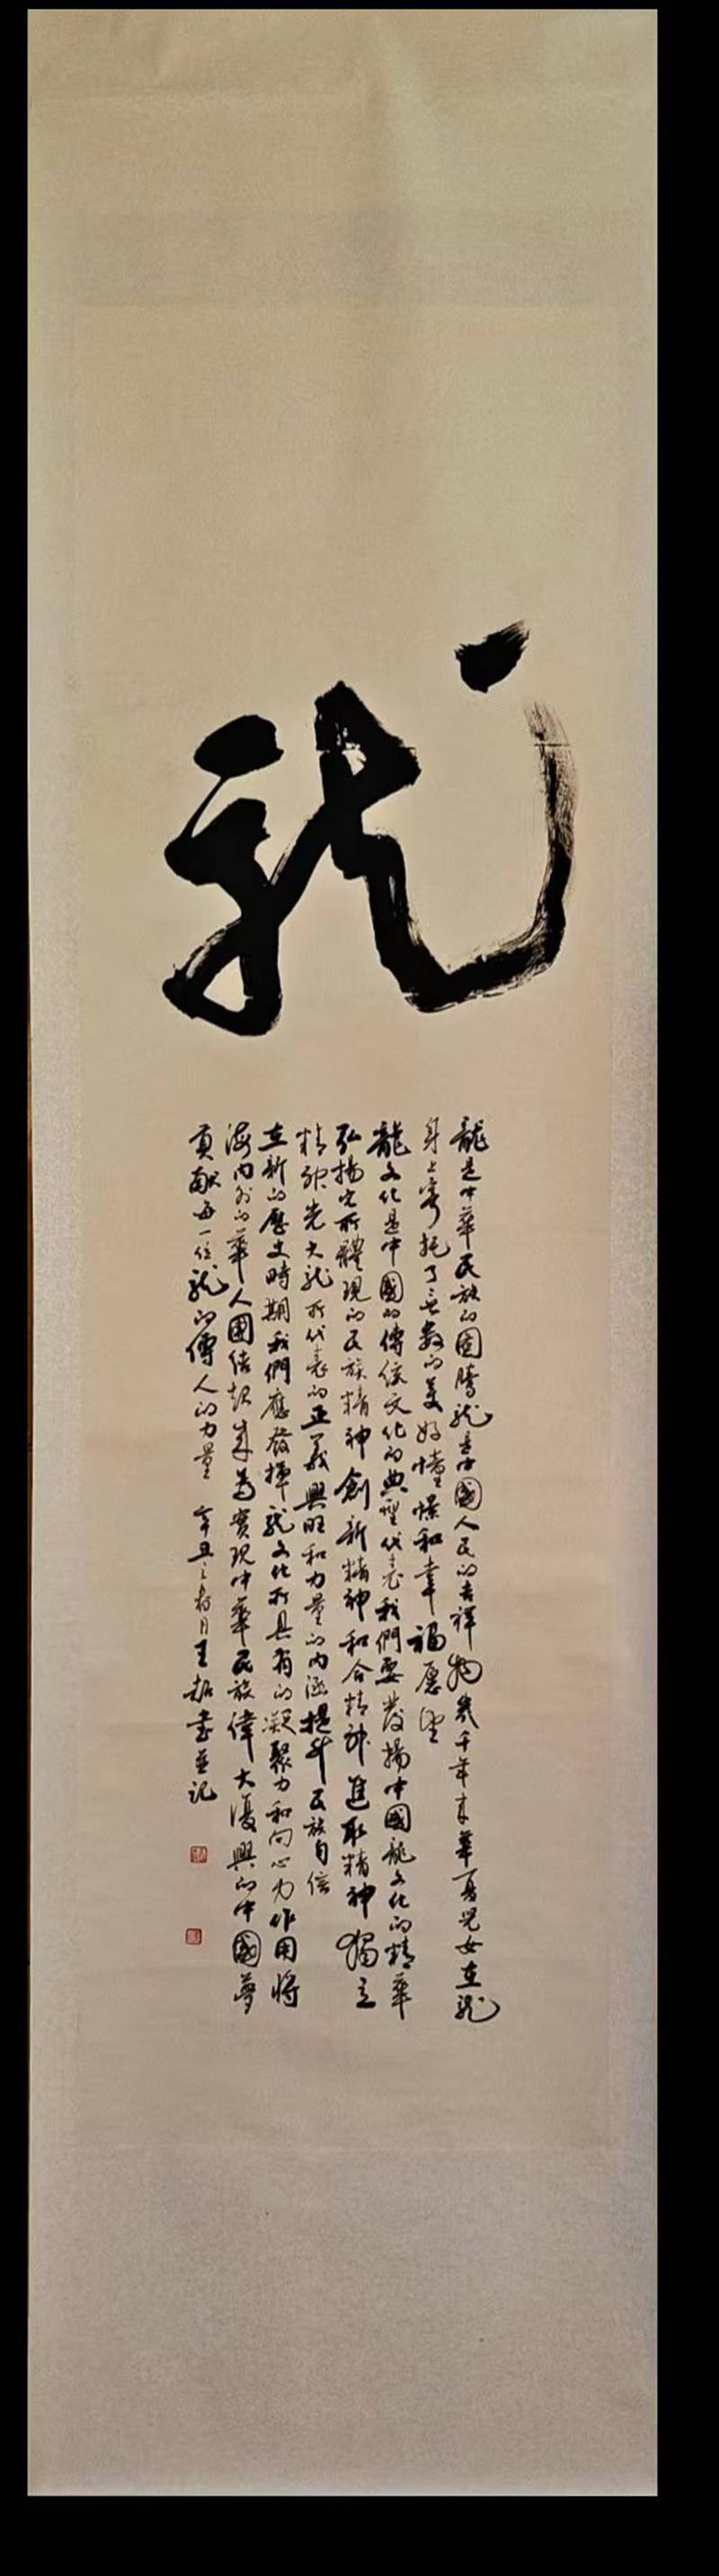 龍
龍是中華民族的圖騰龍是中國人民的吉祥物幾千年來華夏兒女在龍
身上寄托了無數的美好憧憬和幸福愿望
龍文化是中國的傳統文化的典型代表我們要發揚中國龍文化的精華
弘揚它所體現的民族精神創新精神和合精神進取精神獨立
精神光大龍所代表的正義興旺和力量的内涵提升民族自信
在新的歷史時期我們應發揮龍文化所具有的凝聚力和向心力作用將
海内外的華人團結起來為實現中華民族偉大復興的中國夢
貢献每一位龍的傳人的力量 辛丑之 月王 書並記